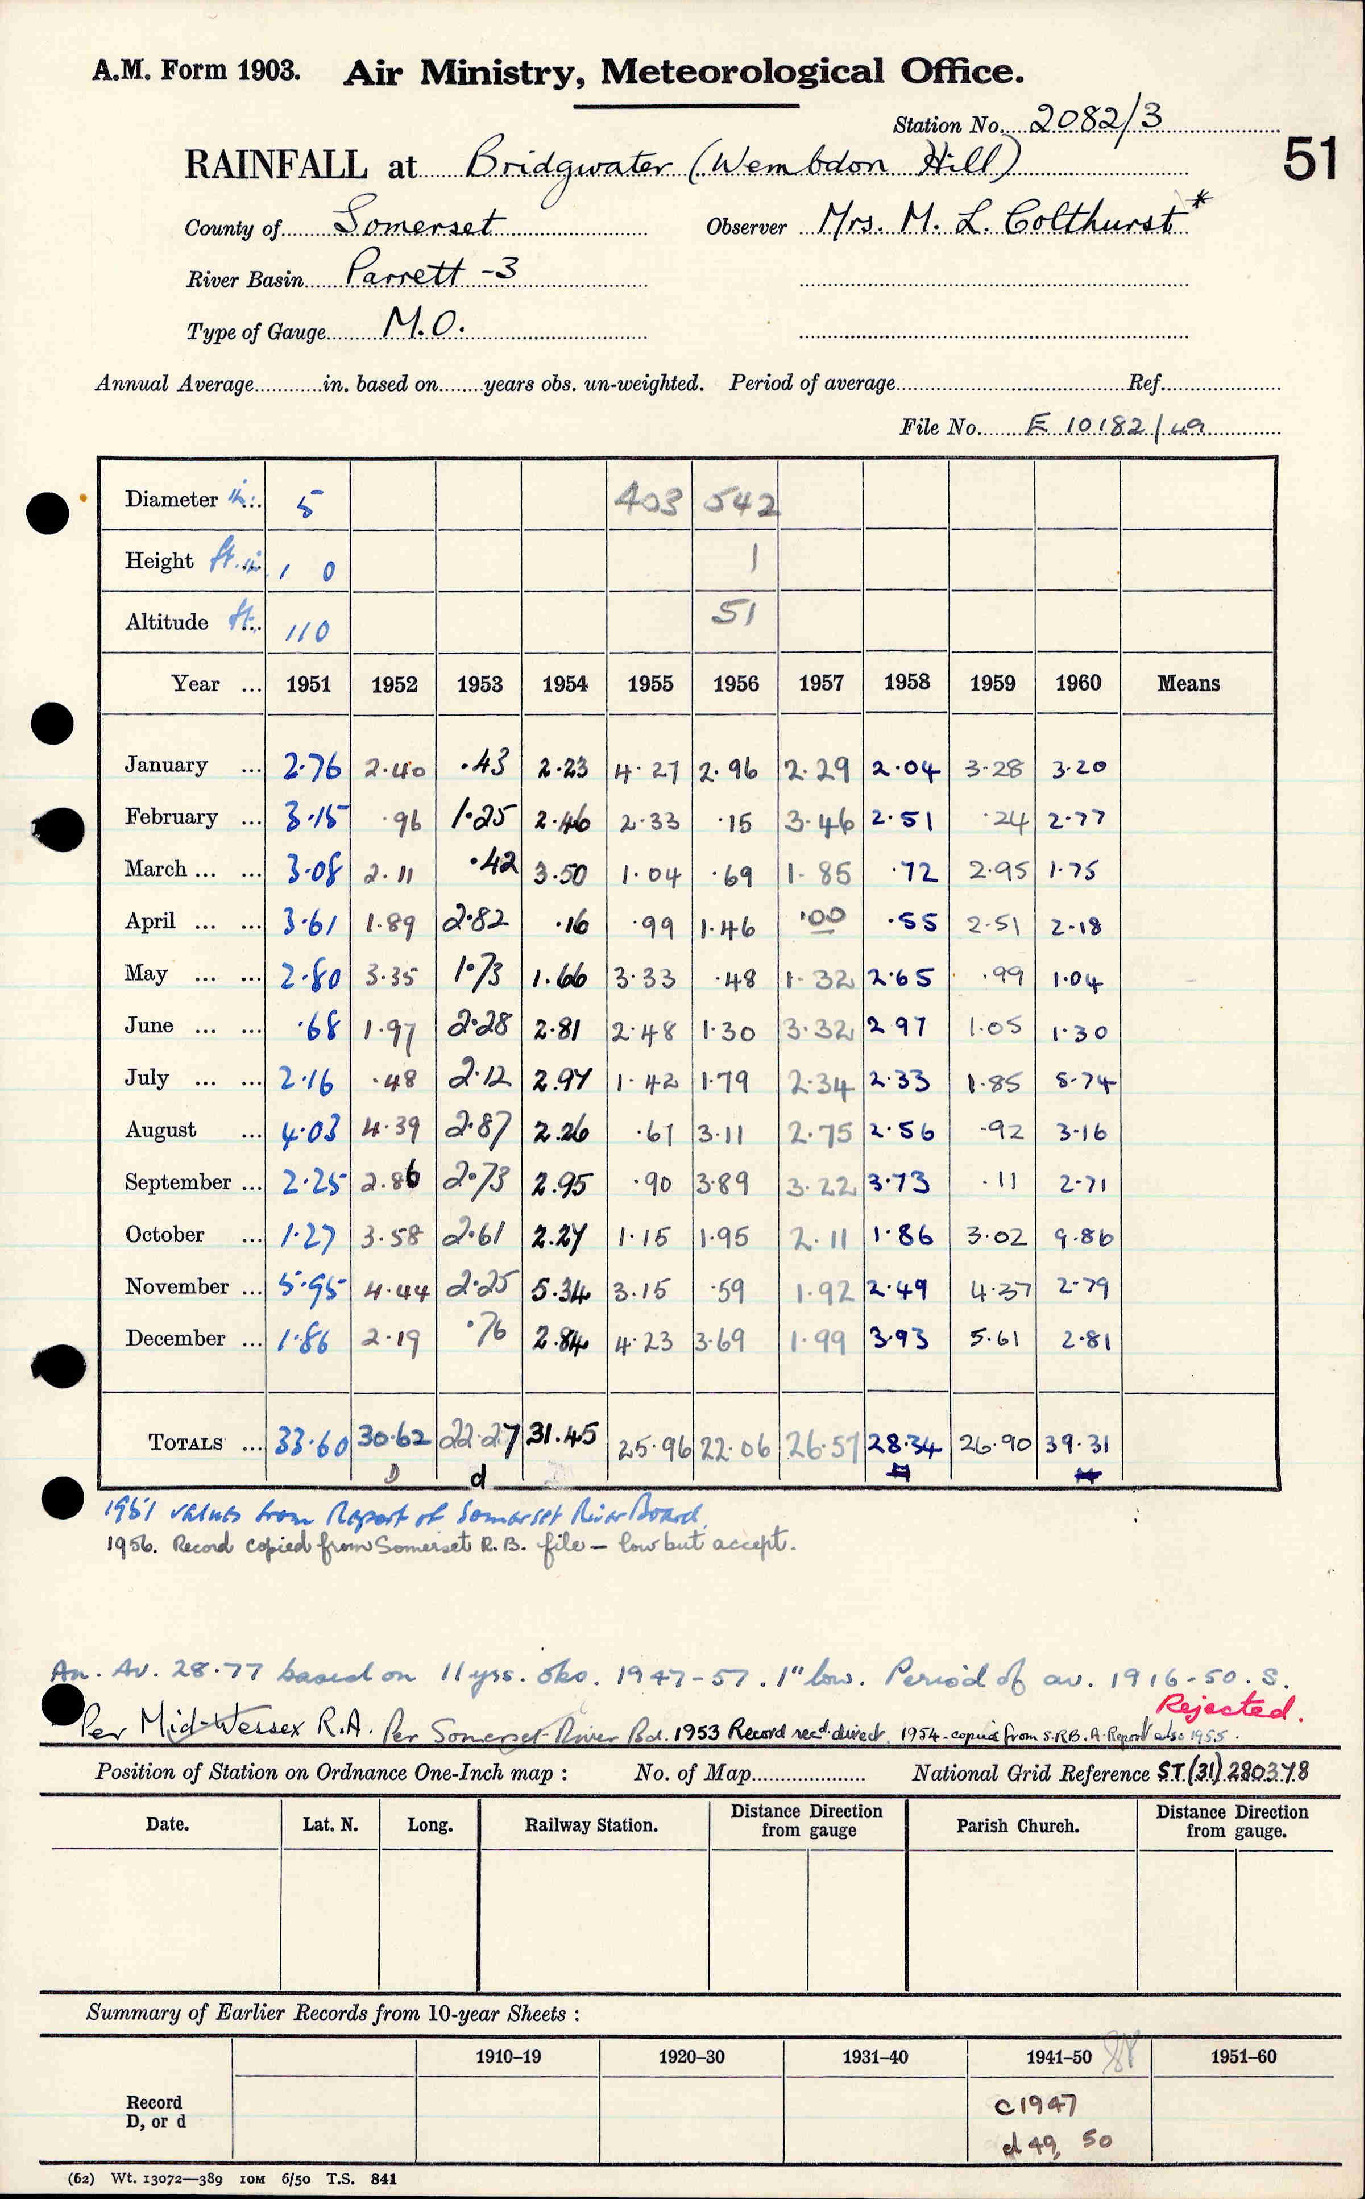 A.M. Form 1903. Air Ministry, Meteorological Office.
Station No. 2082/3
51
RAINFALL at Bridgwater (Wembdon Hill)
County of Somerset Observer Mrs. M. L. Colthurst *
River Basin Parrett -3
Type of Gauge M.O.
Annual Average in. based on years obs. un-weighted. Period of average Ref.
File No. E 10182/49
Diameter in. 5 403 542
Height ft. in. 1 0 1
Altitude ft. 110 51
Year ... 1951 1952 1953 1954 1955 1956 1957 1958 1959 1960 Means
January ... 2.76 2.40 .43 2.23 4.27 2.96 2.29 2.04 3.28 3.20
February ... 3.15 .96 1.25 2.46 2.33 .15 3.46 2.51 .24 2.77
March ... ... 3.08 2.11 .42 3.50 1.04 .69 1.85 .72 2.95 1.75
April ... ... 3.61 1.89 2.82 .16 .99 1.46 .00 .55 2.51 2.18
May ... ... 2.80 3.35 1.73 1.66 3.33 .48 1.32 2.65 .99 1.04
June ... ... .68 1.97 2.28 2.81 2.48 1.30 3.32 2.97 1.05 1.30
July ... ... 2.16 .48 2.12 2.97 1.42 1.79 2.34 2.33 1.85 5.74
August ... 4.03 4.39 2.87 2.26 .67 3.11 2.75 2.56 .92 3.16
September ... 2.25 2.86 2.73 2.95 .90 3.89 3.22 3.73 .11 2.71
October ... 1.27 3.58 2.61 2.27 1.15 1.95 2.11 1.86 3.02 9.86
November ... 5.95 4.44 2.25 5.34 3.15 .59 1.92 2.49 4.37 2.79
December ... 1.86 2.19 .76 2.84 4.23 3.69 1.99 3.93 5.61 2.81
TOTALS ... 33.60 30.62 22.27 31.45 25.96 22.06 26.57 28.34 26.90 39.31
D d
1951 values from Report of Somerset River Board.
1956. Record copied from Somerset R.B. file – low but accept.
An. Av. 28.77 based on 11 yrs. obs. 1947-57. 1" low. Period of av. 1916-50. S.
Rejected.
Per Mid-Wessex R.A. Per Somerset River Bd. 1953 Record recd. direct. 1954 copied from S.R.B. A. Report also 1955.
Position of Station on Ordnance One-Inch map : No. of Map National Grid Reference ST (31) 280378
Date. Lat. N. Long. Railway Station. Distance Direction from gauge Parish Church. Distance Direction from gauge.
Summary of Earlier Records from 10-year Sheets :
1910–19 1920–30 1931–40 1941–50 1951–60
Record
D, or d
C1947
d 49, 50
(62) Wt. 13072—389 10M 6/50 T.S. 841